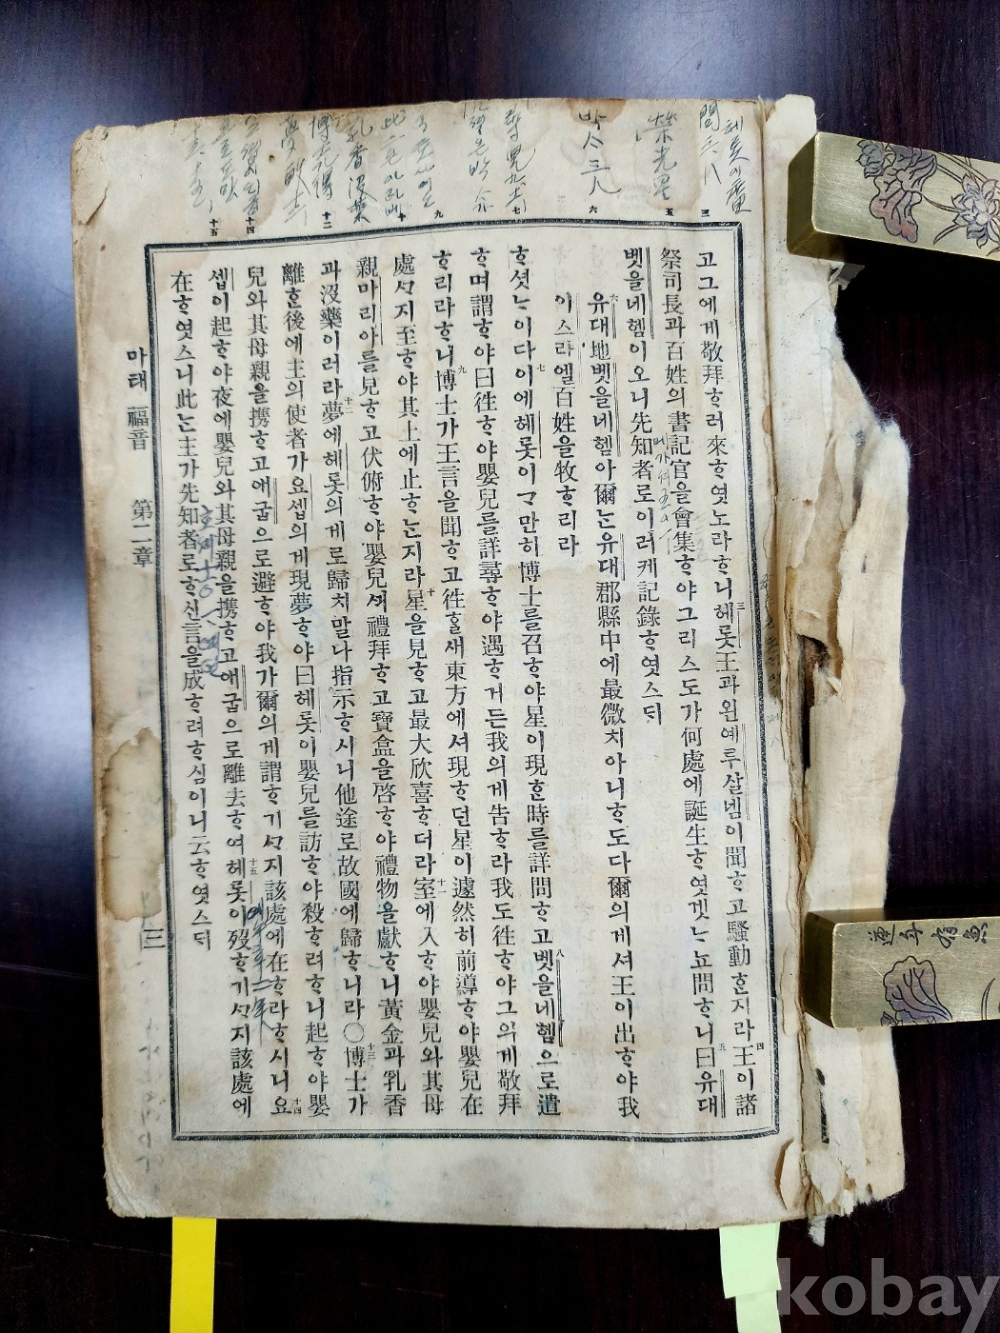 고그에게敬拜ᄒᆞ러來ᄒᆞ엿노라ᄒᆞ니三헤롯王과왼예루살넴이聞ᄒᆞ고騷動ᄒᆞᆫ지라四王이諸
祭司長과百姓의書記官을會集ᄒᆞ야그리스도가何處에誕生ᄒᆞ엿겟ᄂᆞ뇨問ᄒᆞ니五曰유대
벳을네헴이오니先知者로이러케記錄ᄒᆞ엿스되
六유대地벳을네헴아爾ᄂᆞᆫ유대郡縣中에最微치아니ᄒᆞ도다爾의게셔王이出ᄒᆞ야我
이스라엘百姓을牧ᄒᆞ리라
ᄒᆞ셧ᄂᆞ이다七이에헤롯이ᄀᆞ만히博士를召ᄒᆞ야星이現ᄒᆞᆫ時를詳問ᄒᆞ고八벳을네헴으로遣
ᄒᆞ며謂ᄒᆞ야曰徃ᄒᆞ야嬰兒를詳尋ᄒᆞ야遇ᄒᆞ거든我의게告ᄒᆞ라我도徃ᄒᆞ야그의게敬拜
ᄒᆞ리라ᄒᆞ니九博士가王言을聞ᄒᆞ고徃ᄒᆞᆯ새東方에셔現ᄒᆞ던星이遽然히前導ᄒᆞ야嬰兒在
處ᄭᆞ지至ᄒᆞ야其上에止ᄒᆞᄂᆞᆫ지라十星을見ᄒᆞ고最大欣喜ᄒᆞ더라十一室에入ᄒᆞ야嬰兒와其母
親마리아를見ᄒᆞ고伏俯ᄒᆞ야嬰兒ᄭᅴ禮拜ᄒᆞ고寶盒을啓ᄒᆞ야禮物을獻ᄒᆞ니黃金과乳香
과沒藥이러라十二夢에헤롯의게로歸치말나指示ᄒᆞ시니他途로故國에歸ᄒᆞ니라〇十三博士가
離ᄒᆞᆫ後에主의使者가요셉의게現夢ᄒᆞ야曰헤롯이嬰兒를訪ᄒᆞ야殺ᄒᆞ려ᄒᆞ니起ᄒᆞ야嬰
兒와其母親을携ᄒᆞ고애굽으로避ᄒᆞ야我가爾의게謂ᄒᆞ기ᄭᆞ지該處에在ᄒᆞ라ᄒᆞ시니十四요
셉이起ᄒᆞ야夜에嬰兒와其母親을携ᄒᆞ고애굽으로離去ᄒᆞ여十五헤롯이歿ᄒᆞ기ᄭᆞ지該處에
在ᄒᆞ엿스니此ᄂᆞᆫ主가先知者로ᄒᆞ신言을成ᄒᆞ려ᄒᆞ심이니云ᄒᆞ엿스되
마태福音 第二章 三
三
五
六
七
九
十
十二
十四
十五
問三八
榮光星
박스三九
蓮年有魚
kobay